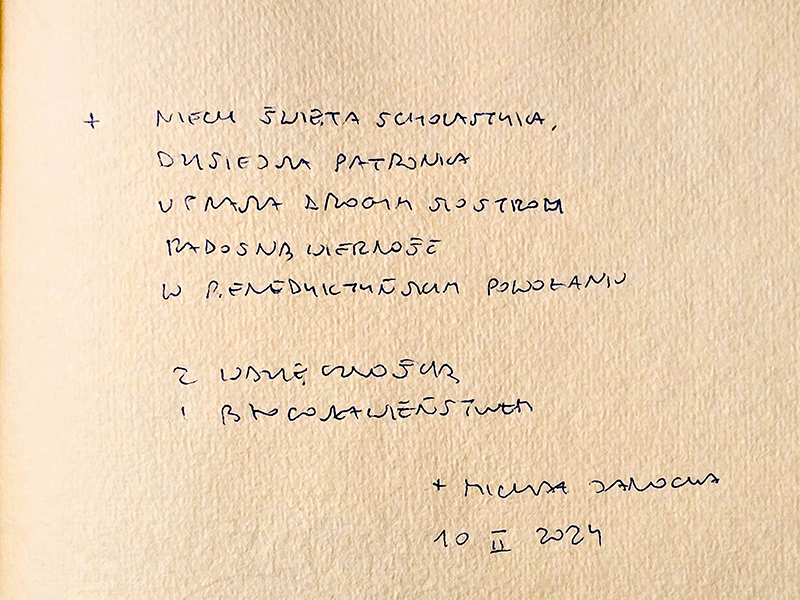 + NIECH ŚWIĘTA SCHOLASTYKA,
DZISIEJSZA PATRONKA
UPRASZA DROGIM SIOSTROM
RADOSNĄ WIERNOŚĆ
W BENEDYKTYŃSKIM POWOŁANIU
Z WDZIĘCZNOŚCIĄ
I BŁOGOSŁAWIEŃSTWEM
+ MICHAŁ JANOCHA
10 II 2024